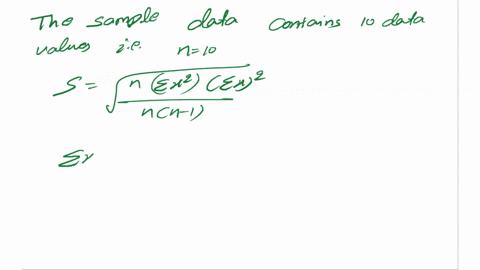 The sample data contains 10 data
values i.e. n=10
S = √(n(Σx²)(Σx)² / n(n-1))
Σx